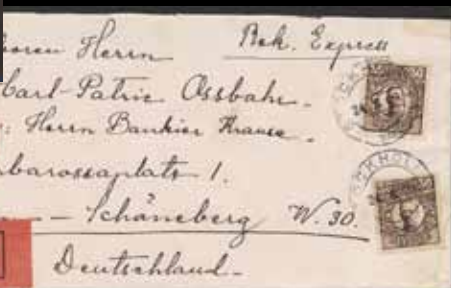 Herrn Rek. Express
Carl-Patric Ossbahr.
Herrn Bankier Krause.
barossaplats 1.
— Schöneberg W. 30.
Deutschland.